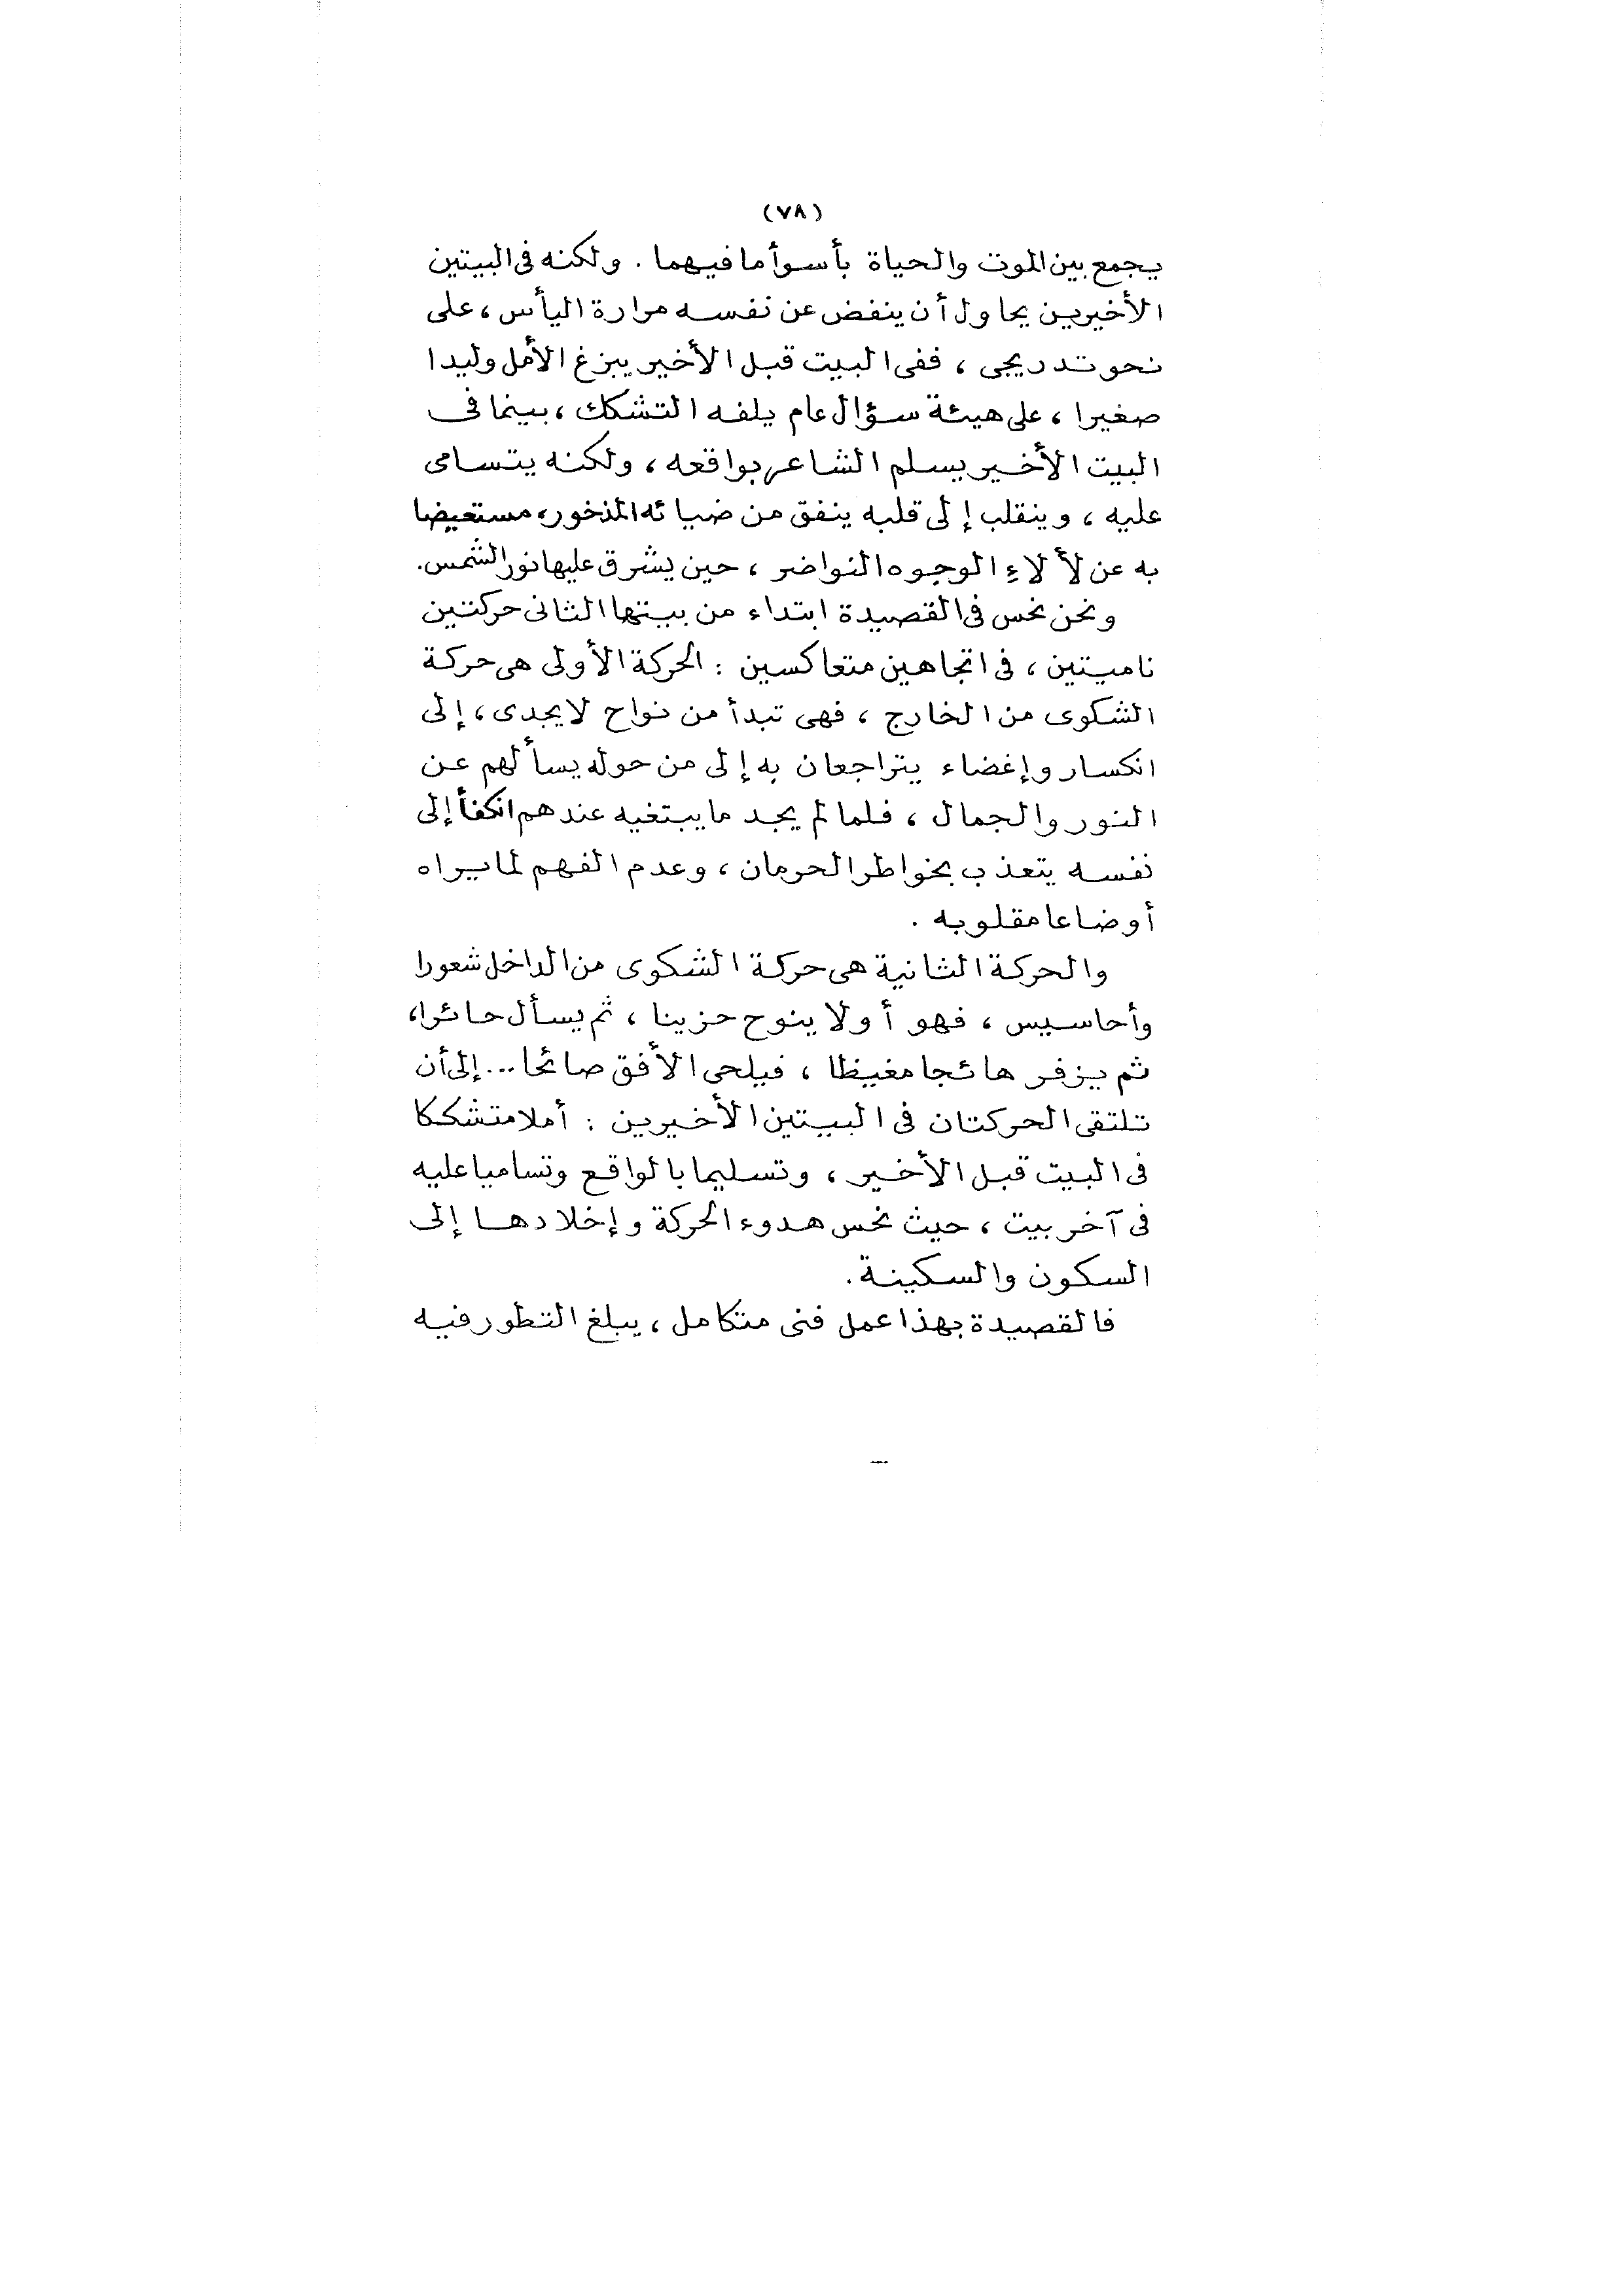 (٧٨)
يجمع بين الموت والحياة بأسوأ ما فيهما . ولكنه فى البيتين
الأخيرين يحاول أن ينفض عن نفسه مرارة اليأس ، على
نحو تدريجى ، ففى البيت قبل الأخير يبزغ الأمل وليدا
صغيرا ، على هيئة سؤال عام يلفه التشكك ، بينما فى
البيت الأخير يسلم الشاعر بواقعه ، ولكنه يتسامى
عليه ، وينقلب إلى قلبه ينفق من ضيائه المذخور ، مستعيضا
به عن لألاءِ الوجوه النواضر ، حين يشرق عليها نور الشمس .
ونحن نحس فى القصيدة ابتداء من بيتها الثانى حركتين
ناميتين ، فى اتجاهين متعاكسين : الحركة الأولى هى حركة
الشكوى من الخارج ، فهى تبدأ من نواح لا يجدى ، إلى
انكسار وإغضاء يتراجعان به إلى من حوله يسألهم عن
النور والجمال ، فلما لم يجد ما يبتغيه عندهم انكفأ إلى
نفسه يتعذب بخواطر الحرمان ، وعدم الفهم لما يراه
أوضاعا مقلوبه .
والحركة الثانية هى حركة الشكوى من الداخل شعورا
وأحاسيس ، فهو أولا ينوح حزينا ، ثم يسأل حائرا ،
ثم يزفر هائجا مغيظا ، فيلحى الأفق صائحا ... إلى أن
تلتقى الحركتان فى البيتين الأخيرين : أملا متشككا
فى البيت قبل الأخير ، وتسليما بالواقع وتساميا عليه
فى آخر بيت ، حيث نحس هدوء الحركة وإخلادها إلى
السكون والسكينة .
فالقصيدة بهذا عمل فنى متكامل ، يبلغ التطور فيه